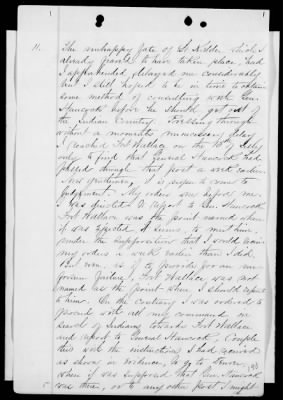 11. The unhappy fate of Lt. Kidder which I
already feared to have taken place, had
I apprehended, delayed me considerably
but I still hoped to be in time to obtain
some method of consulting with Gen.
Hancock before he should get out of
the Indian Country. Pressing through
without a moments unnecessary delay
I reached Fort Wallace on the 13" July
only to find that General Hancock had
passed through that post a week earlier.
Now gentlemen, it is easy to come to
judgment. My orders are before me.
I was directed to report to Gen. Hancock
Fort Wallace was the point named where
it was expected, it seems, to meet him
under the supposition that I would receive
my orders a week earlier than I did.
But even, as if to provide for an
Fort Wallace was not
named as the point where I should report
to him. On the contrary I was ordered to
proceed with all my command in
travel of Indians towards Fort Wallace
and report to General Hancock, Couple
this with the instructions I had received
as shown in evidence, to go to
where it was supposed that Gen. Hancock
was there, or to any other post I might